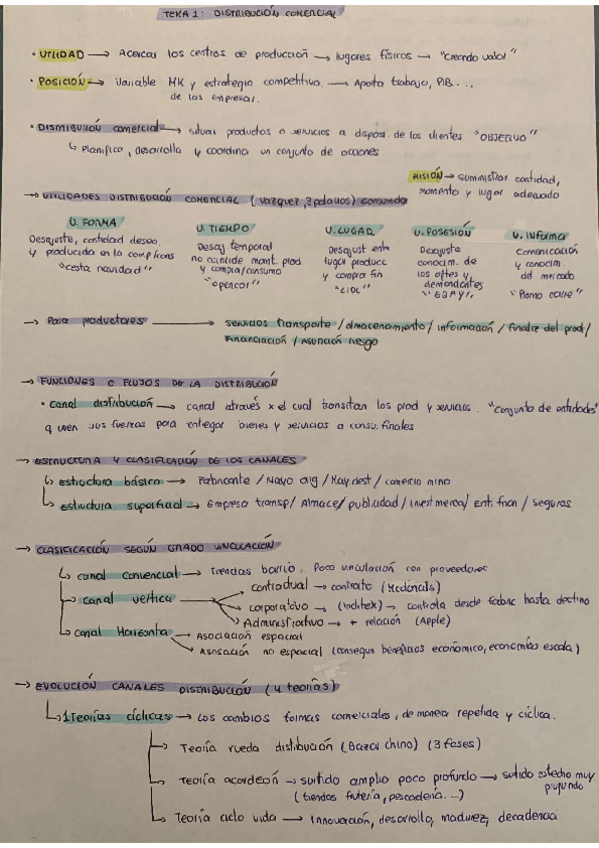 TEMA 1: DISTRIBUCIÓN COMERCIAL
• UTILIDAD → Acercar los centros de producción → lugares físicos → "creando valor"
• POSICIÓN → Variable MK y estrategia competitiva → Aporta trabajo, PIB...
de las empresas.
• Distribución comercial → situar productos o servicios a dispos. de los clientes "OBJETIVO"
↳ planifica, desarrolla y coordina un conjunto de acciones
MISIÓN → suministrar cantidad,
momento y lugar adecuado
→ UTILIDADES DISTRIBUCIÓN COMERCIAL (Vazquez, 3 palacios) consumido
U. FORMA U. TIEMPO U. LUGAR U. POSESIÓN U. Informa
Desajuste, cantidad desea Desaj. temporal Desajust entr Desajuste Comunicación
y producida en la comp/cons no coincide mont. prod lugar produce conocim. de y conocim
"cesta navidad" y compra/consumo y compra fin los oftes y del mercado
"opencor" "LIDL" demandantes "Plano calle"
→ Para productores → servicios transporte / almacenamiento / información / finaliz del prod /
Financiación / Asunción riesgo
→ FUNCIONES O FLUJOS DE LA DISTRIBUCIÓN
• Canal distribución → canal através x el cual transitan los prod y servicios. "Conjunto de entidades"
q unen sus fuerzas para entregar bienes y servicios a consu. finales
→ ESTRUCTURA Y CLASIFICACIÓN DE LOS CANALES
↳ estructura básica → Fabricante / Mayo orig / May dest / comercio mino
↳ estructura superficial → Empresa transp / Almace / publicidad / invest merca / enti. finan / seguros
→ CLASIFICACIÓN SEGÚN GRADO VINCULACIÓN
↳ canal convencial → Tiendas barrio. Poca vinculación con proveedores
→ canal vertica → contractual → contrato (Mcdonals)
→ corporativo → (Inditex) → controla desde fabric hasta destino
→ Administrativo → + relación (Apple)
↳ canal Horizonta → Asociación espacial
→ Asosación no espacial (consegun beneficios económico, economías escala)
→ EVOLUCIÓN CANALES DISTRIBUCIÓN (4 teorías)
↳ 1 Teorías cíclicas → Los cambios formas comerciales, de manera repetida y cíclica.
→ Teoría rueda distribución (Bazar chino) (3 fases)
→ Teoría acordeón → surtido amplio poco profundo → surtido estrecho muy
profundo
(tiendas frutería, pescadería...)
→ Teoría ciclo vida → Innovación, desarrollo, madurez, decadenci